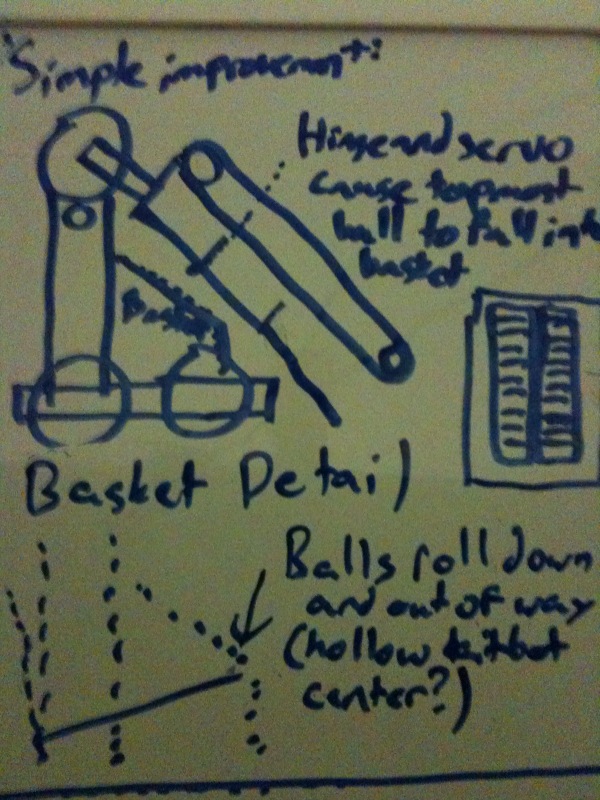 Simple improvement:
Hinge and servo
cause topmost
ball to fall into
basket
Basket
Basket Detail
Balls roll down
and out of way
(hollow kitbot
center?)